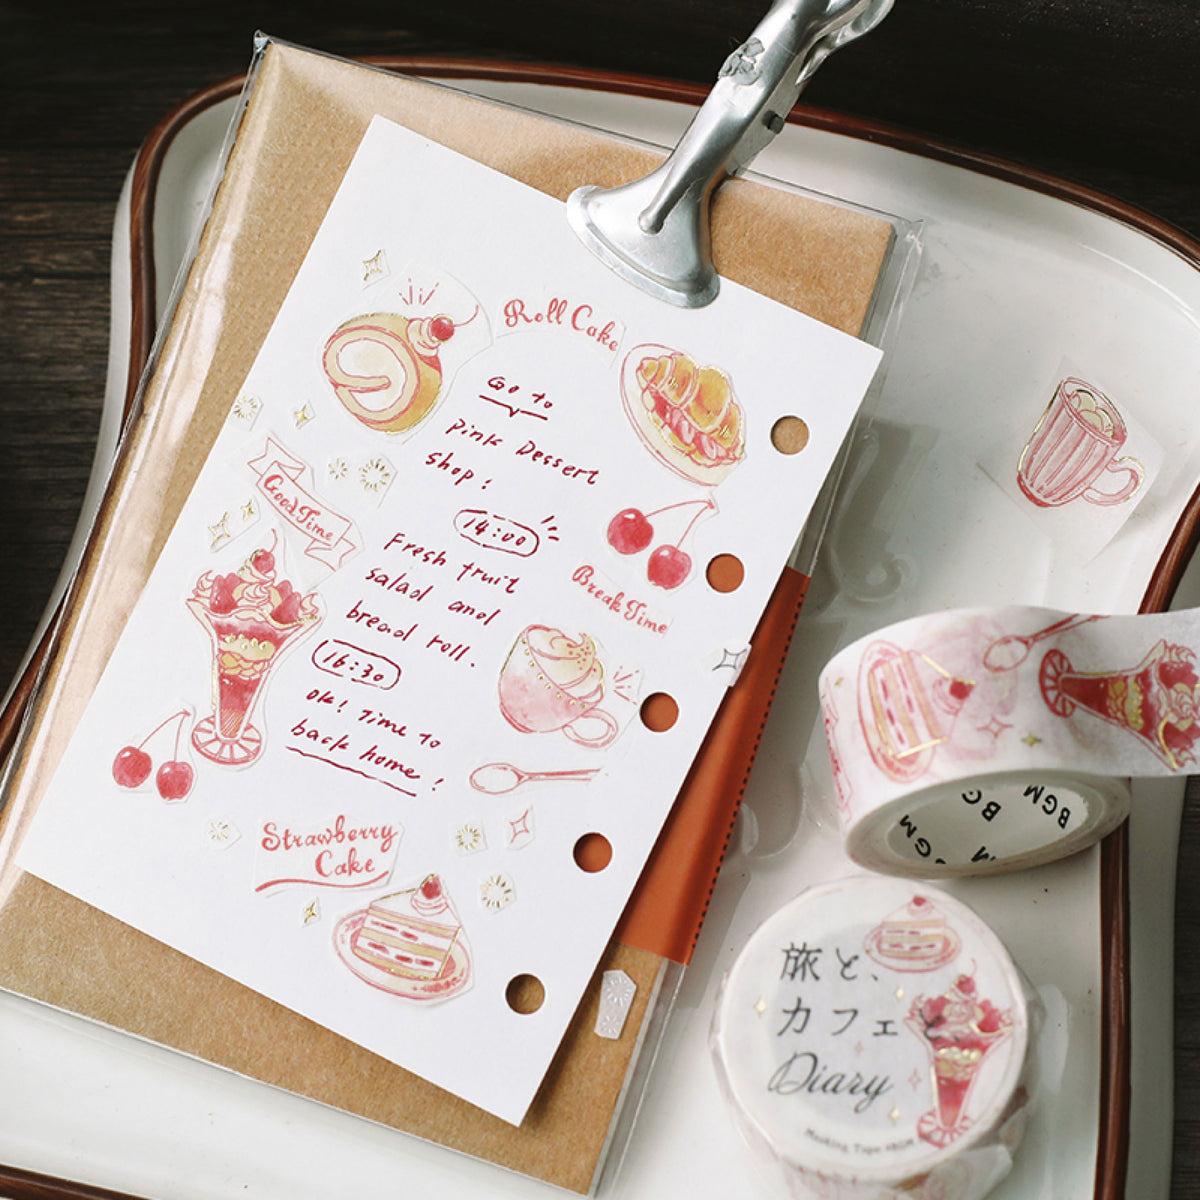 Roll Cake
Go to
Pink Dessert
shop!
14:00
Good Time
Fresh fruit
salad and
bread roll.
Break Time
16:30
OK! Time to
back home!
Strawberry
Cake
BGM
BGM
BGM
旅と、
カフェと、
Diary
Masking Tape *BGM